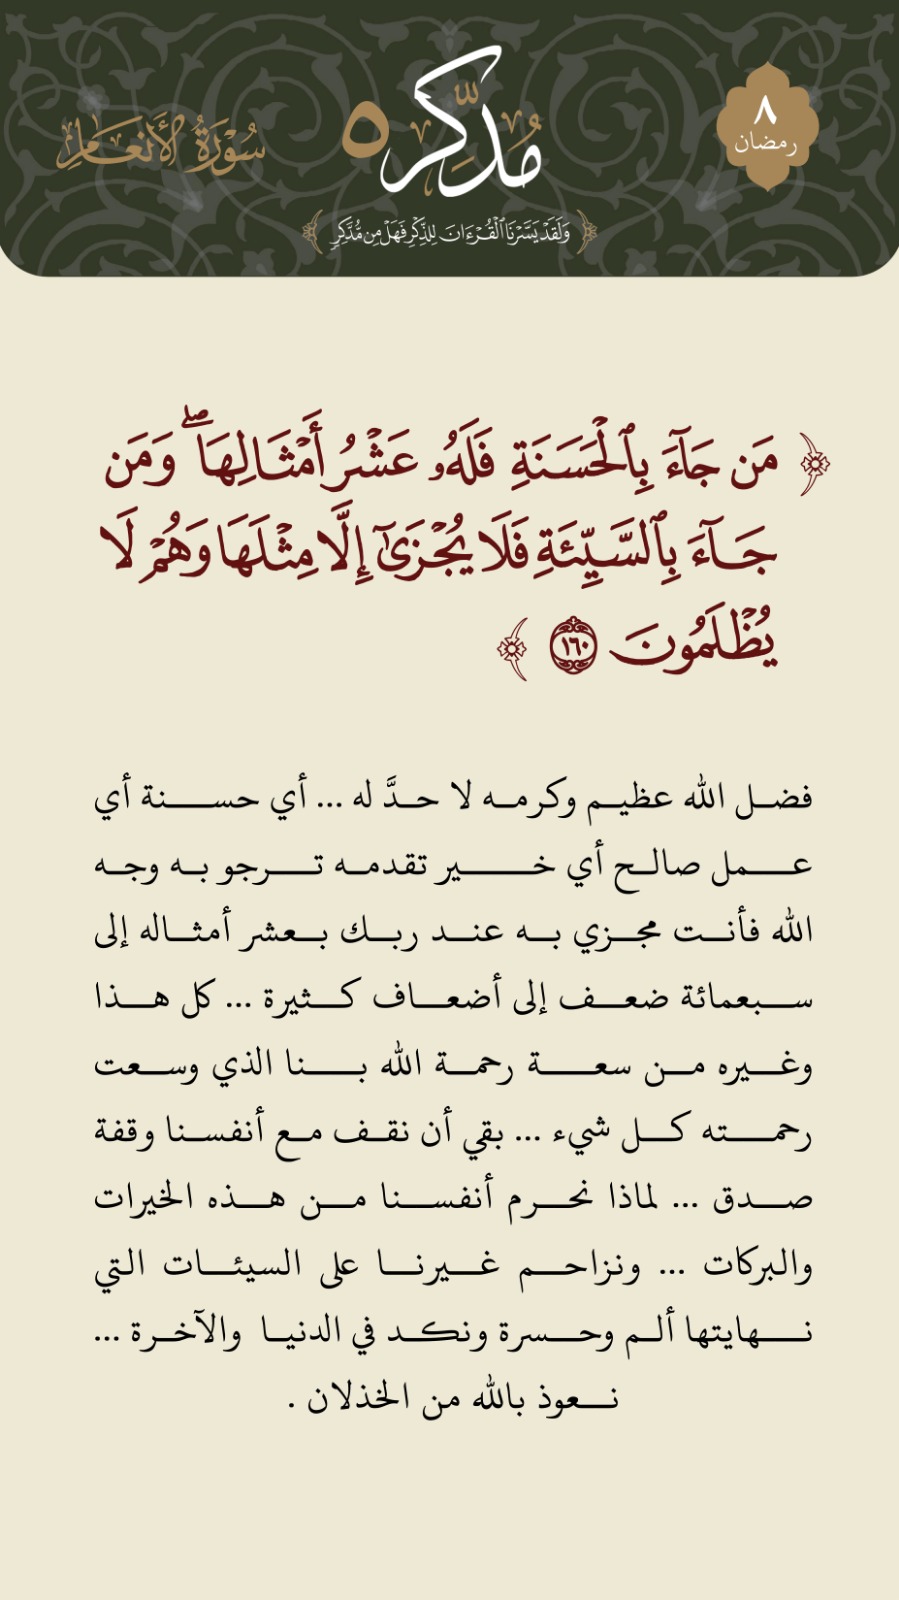 ٨
رمضان
مُدَّكِر ٥
سُورَةُ الأَنْعَامِ
وَلَقَدْ يَسَّرْنَا ٱلْقُرْءَانَ لِلذِّكْرِ فَهَلْ مِن مُّدَّكِرٍ
﴿ مَن جَآءَ بِٱلْحَسَنَةِ فَلَهُۥ عَشْرُ أَمْثَالِهَاۖ وَمَن
جَآءَ بِٱلسَّيِّئَةِ فَلَا يُجْزَىٰٓ إِلَّا مِثْلَهَا وَهُمْ لَا
يُظْلَمُونَ ١٦٠ ﴾
فضل الله عظيم وكرمه لا حدَّ له ... أي حسنة أي
عمل صالح أي خير تقدمه ترجو به وجه
الله فأنت مجزي به عند ربك بعشر أمثاله إلى
سبعمائة ضعف إلى أضعاف كثيرة ... كل هذا
وغيره من سعة رحمة الله بنا الذي وسعت
رحمته كل شيء ... بقي أن نقف مع أنفسنا وقفة
صدق ... لماذا نحرم أنفسنا من هذه الخيرات
والبركات ... ونزاحم غيرنا على السيئات التي
نهايتها ألم وحسرة ونكد في الدنيا والآخرة ...
نعوذ بالله من الخذلان .